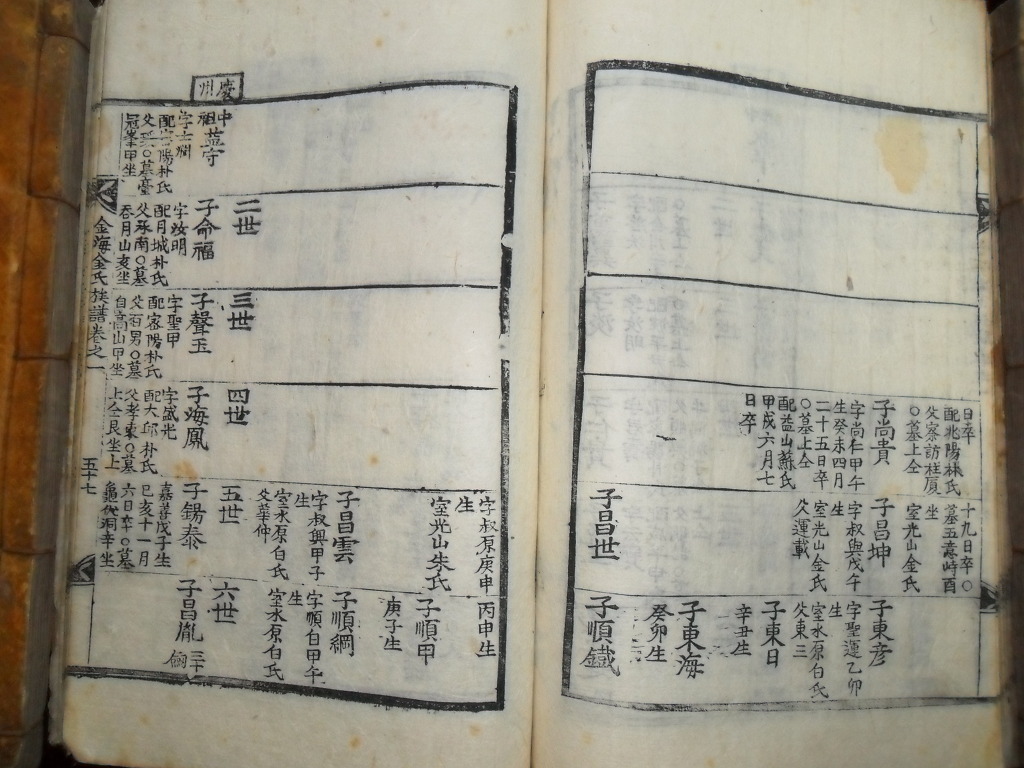 日卒
配兆陽林氏
父察訪柱厦
○墓上仝
子尚貴
字尚仁甲午
生癸未四月
二十五日卒
○墓上仝
配益山蘇氏
甲戌六月七
日卒
十九日卒○
墓五意峙酉
坐
室光山金氏
子昌坤
字叔與戊午
生
室光山金氏
父運載
子昌世
子東彦
字聖運乙卯
生
室水原白氏
父東三
子東日
辛丑生
子東海
癸卯生
子順鐵
慶州
中祖益守
字士潤
配密陽朴氏
○墓臺
冠峯甲坐
二世
子命福
字汝明
配月城朴氏
父承南○墓
吞月山亥坐
三世
子聲玉
字聖甲
配密陽朴氏
父石男○墓
自高山甲坐
四世
子海鳳
字盛光
配大邱朴氏
父孝東○墓
上仝艮坐上
字叔原庚申
生
室光山朱氏
子昌雲
字叔興甲子
生
室水原白氏
父華仲
五世
子錫泰
嘉善戊子生
己亥十一月
六日卒○墓
龜伏洞辛坐
丙申生
子順甲
庚子生
子順綱
字順白甲午
生
室水原白氏
六世
子昌胤
金海金氏族譜卷之一
五十七